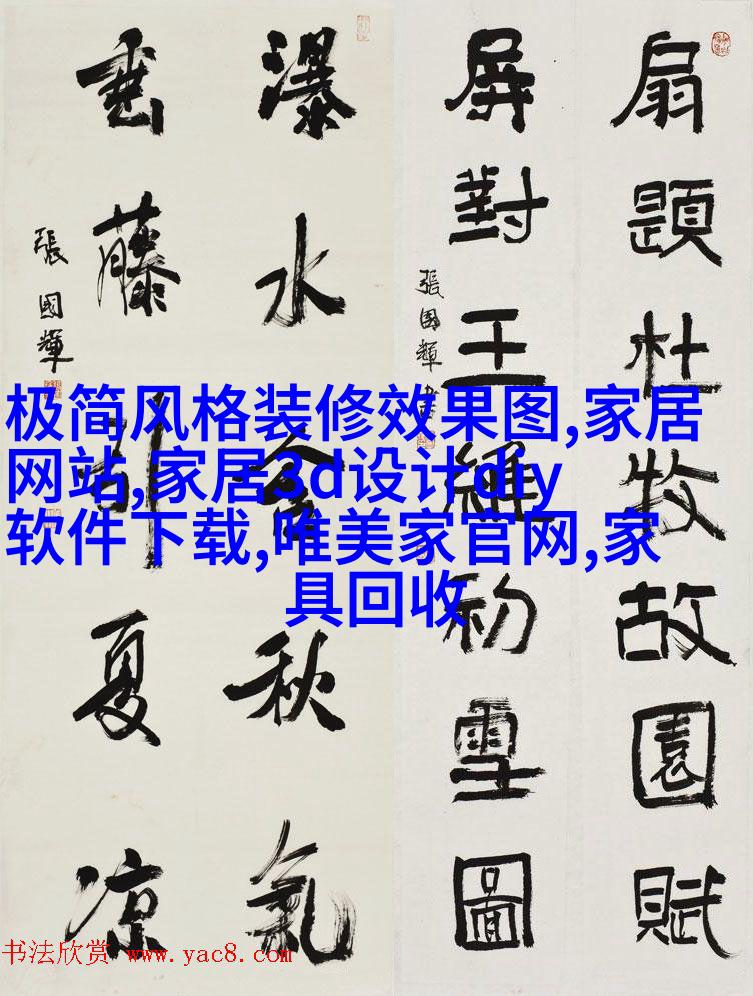 扇題杜牧故園賦
屏對王維初雪圖
張國輝
瀑水含秋氣
垂藤引夏凉
張國輝
极简风格装修效果图,家居
网站,家居3d设计diy
软件下载,唯美家官网,家
具回收
书法欣赏 www.yac8.com